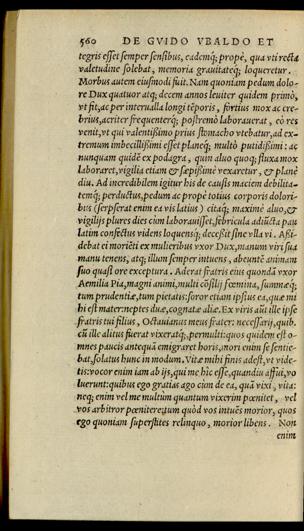 560 DE GVIDO VBALDO ET
tegris esset semper sensibus, eademq; propè, qua vti recta
valetudine solebat, memoria grauitateq; loqueretur.
Morbus autem eiusmodi fuit. Nam quoniam pedum dolo-
re Dux quatuor atq; decem annos leuiter quidem primò,
vt fit, ac per interualla longi tēporis, fortius mox ac cre-
brius, acriter frequenterq; postremò laborauerat, eò res
venit, vt qui valentissimo prius stomacho vtebatur, ad ex-
tremum imbecillissimi esset planeq; multò putidissimi: ac
nunquam quidē ex podagra, quin aluo quoq; fluxa mox
laboraret, vigilia etiam & sæpissimè vexaretur, & planè
diu. Ad incredibilem igitur his de causis maciem debilita-
temq; perductus, pedum ac propè totius corporis dolori-
bus (serpserat enim ea vis latius) citaq; maximè aluo, &
vigilijs plures dies cùm laborauisset, febricula adiūcta pau
latim confectus videns loquensq; decessit sine vlla vi. Assi-
debat ei moriēti ex mulieribus vxor Dux, manum viri sua
manu tenens, atq; illum semper intuens, abeuntē animam
suo quasi ore exceptura. Aderat fratris eius quondā vxor
Aemilia Pia, magni animi, multi cōsilij fœmina, summæq;
tum prudentiæ, tum pietatis: soror etiam ipsius ea, quæ mi
hi est mater: neptes duæ, cognatæ aliæ. Ex viris aūt ille ipse
fratris tui filius, Octauianus meus frater: necessarij, quib.
cū ille alitus fuerat vixeratq;, permulti: quos quidem est o-
mnes paucis antequā emigraret horis, mori enim se sentie-
bat, solatus hunc in modum. Vitæ mihi finis adest, vt vide-
tis: vocor enim iam ab ijs, qui me hîc esse, quandiu affui, vo
luerunt: quibus ego gratias ago cùm de ea, quā vixi, vita:
neq; enim vel me multùm quantum vixerim pœnitet, vel
vos arbitror pœniteretum quòd vos intuēs morior, quos
ego quoniam superstites relinquo, morior libens. Non
enim